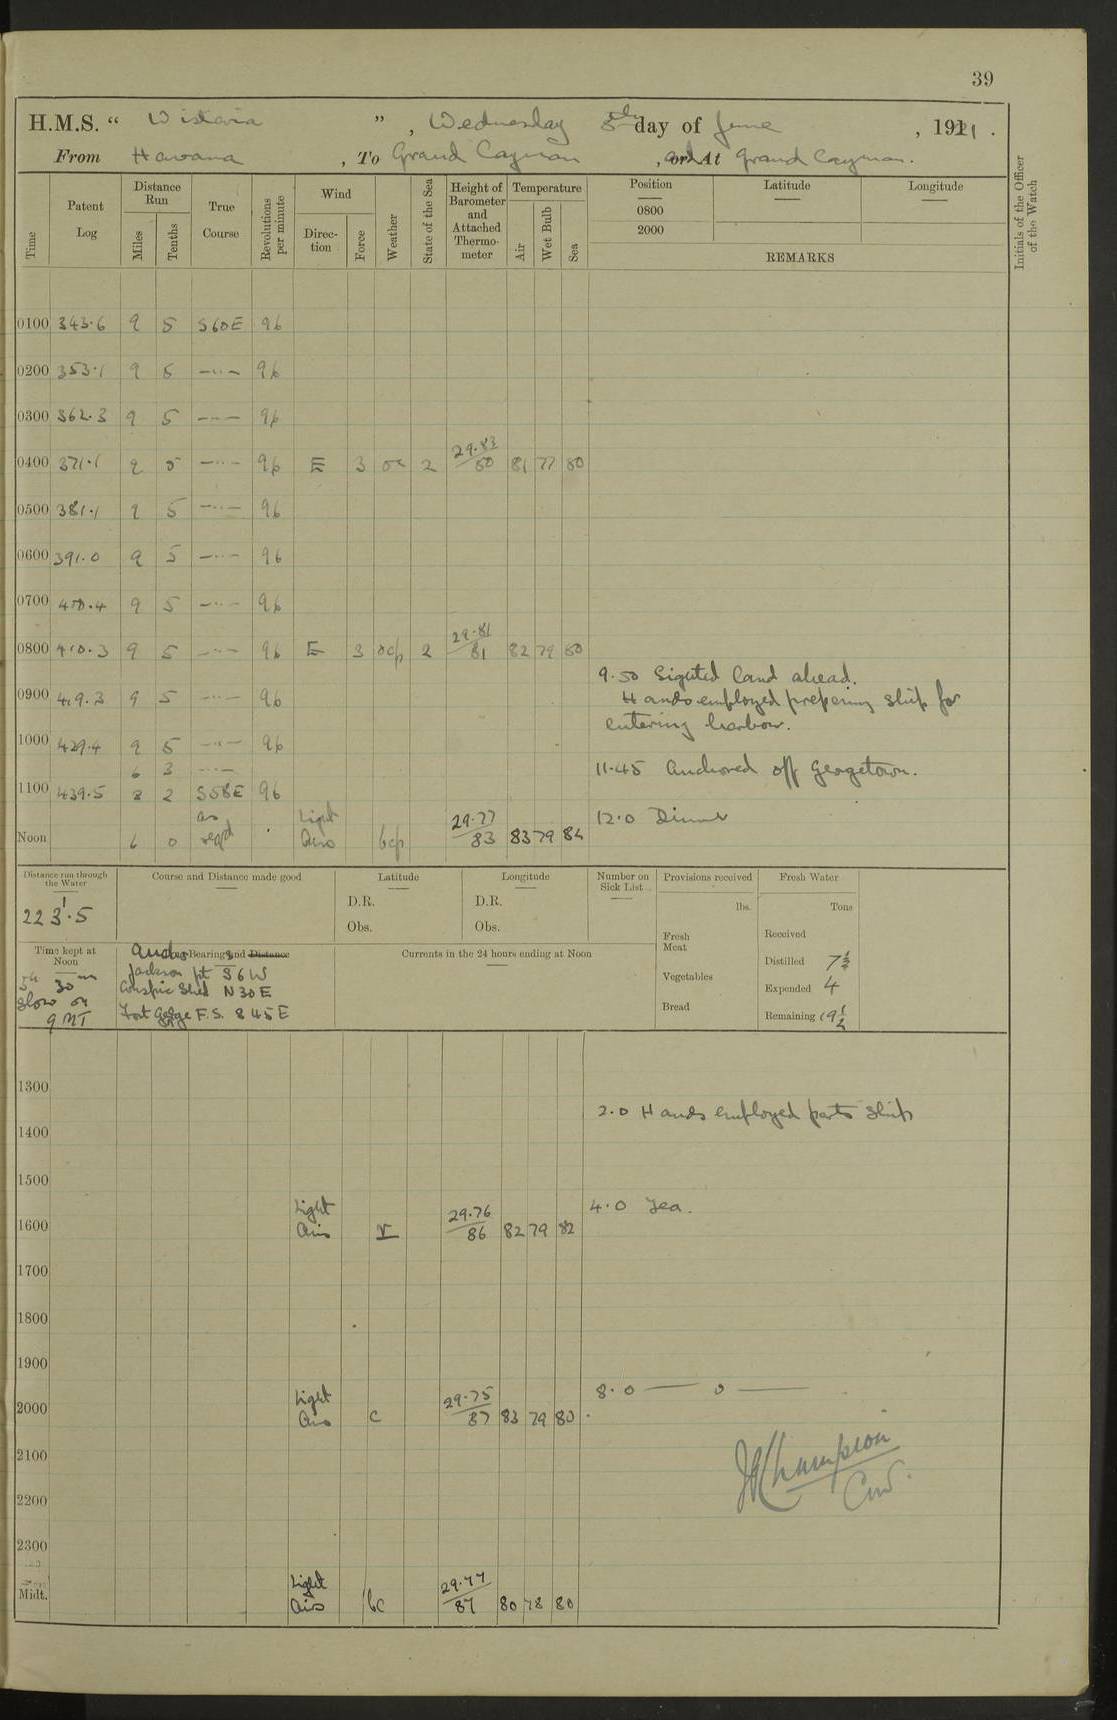 39
H.M.S. “ Wistaria ” , Wednesday 8th day of June , 1921 .
From Havana , To Grand Cayman , and At Grand Cayman.
Time
Patent Log
Distance Run
Miles
Tenths
True Course
Revolutions per minute
Wind
Direction
Force
Weather
State of the Sea
Height of Barometer and Attached Thermometer
Temperature
Air
Wet Bulb
Sea
Position
0800
2000
Latitude
Longitude
REMARKS
Initials of the Officer of the Watch
0100 343.6 9 5 S60E 96
0200 353.1 9 5 —··— 96
0300 362.3 9 5 —··— 96
0400 371.1 9 5 —··— 96 E 3 oc 2 29.83/80 81 77 80
0500 381.1 9 5 —··— 96
0600 391.0 9 5 —··— 96
0700 400.4 9 5 —··— 96
0800 410.3 9 5 —··— 96 E 3 ocp 2 29.81/81 82 79 80
9.50 Sighted land ahead.
0900 419.3 9 5 —··— 96
Hands employed preparing ship for
entering harbour.
1000 429.4 9 5 —··— 96
6 3 —··—
11.45 Anchored off Georgetown.
1100 439.5 8 2 S58E 96
12.0 Dinner
Noon 6 0 as reqd Light Airs bcp 29.77/83 83 79 84
Distance run through the Water
223.5
Course and Distance made good
Latitude
D.R.
Obs.
Longitude
D.R.
Obs.
Number on Sick List
Provisions received
lbs.
Fresh Meat
Vegetables
Bread
Fresh Water
Tons
Received
Distilled 7½
Expended 4
Remaining 19½
Time kept at Noon
5h 30m
Slow on
GMT
Anchor Bearings and Distance
Jackson pt S6W
Conspic Shed N30E
Fort George F.S. S45E
Currents in the 24 hours ending at Noon
1300
2.0 Hands employed parts ship
1400
1500
4.0 Tea.
1600 Light Airs v 29.76/86 82 79 82
1700
1800
1900
8.0 — 0 —
2000 Light Airs c 29.75/87 83 79 80
2100
JP Champion
Cdr
2200
2300
Midt. Light Airs bc 29.77/87 80 78 80